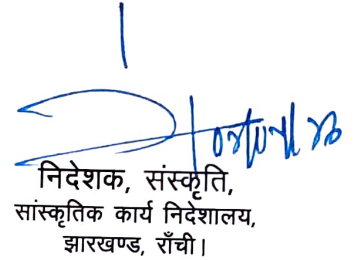 निदेशक, संस्कृति,
सांस्कृतिक कार्य निदेशालय,
झारखण्ड, राँची।